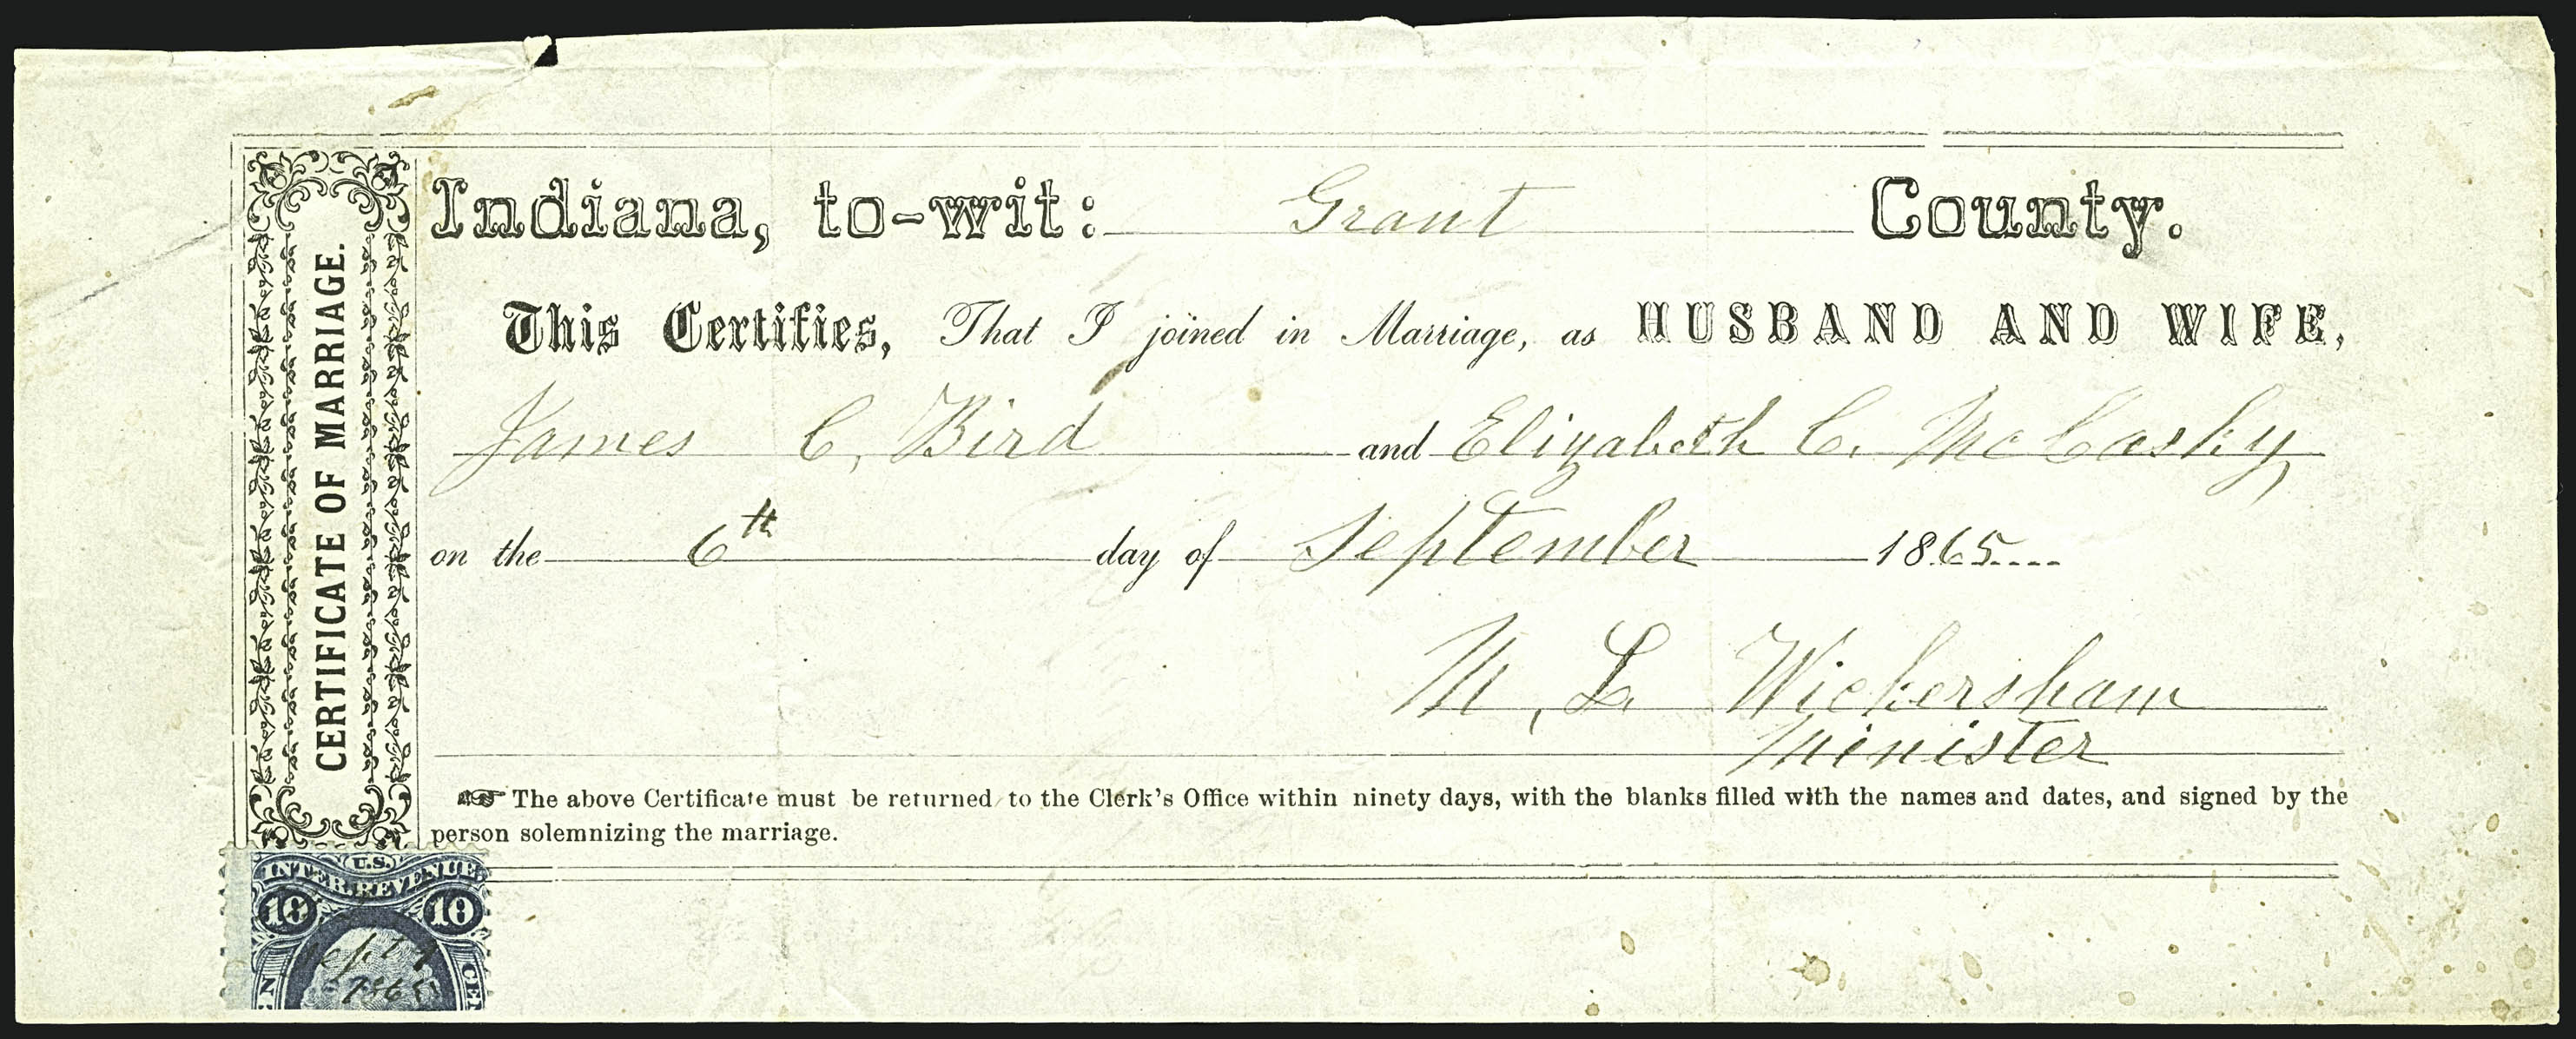 CERTIFICATE OF MARRIAGE.
Indiana, to-wit: Grant County.
This Certifies, That I joined in Marriage, as HUSBAND AND WIFE,
James C. Bird and Elizabeth C. McCasky
on the 6th day of September 1865
L. Wickersham
Minister
The above Certificate must be returned to the Clerk's Office within ninety days, with the blanks filled with the names and dates, and signed by the
person solemnizing the marriage.
U.S.
INTER. REVENUE
10 10
Sept
1865